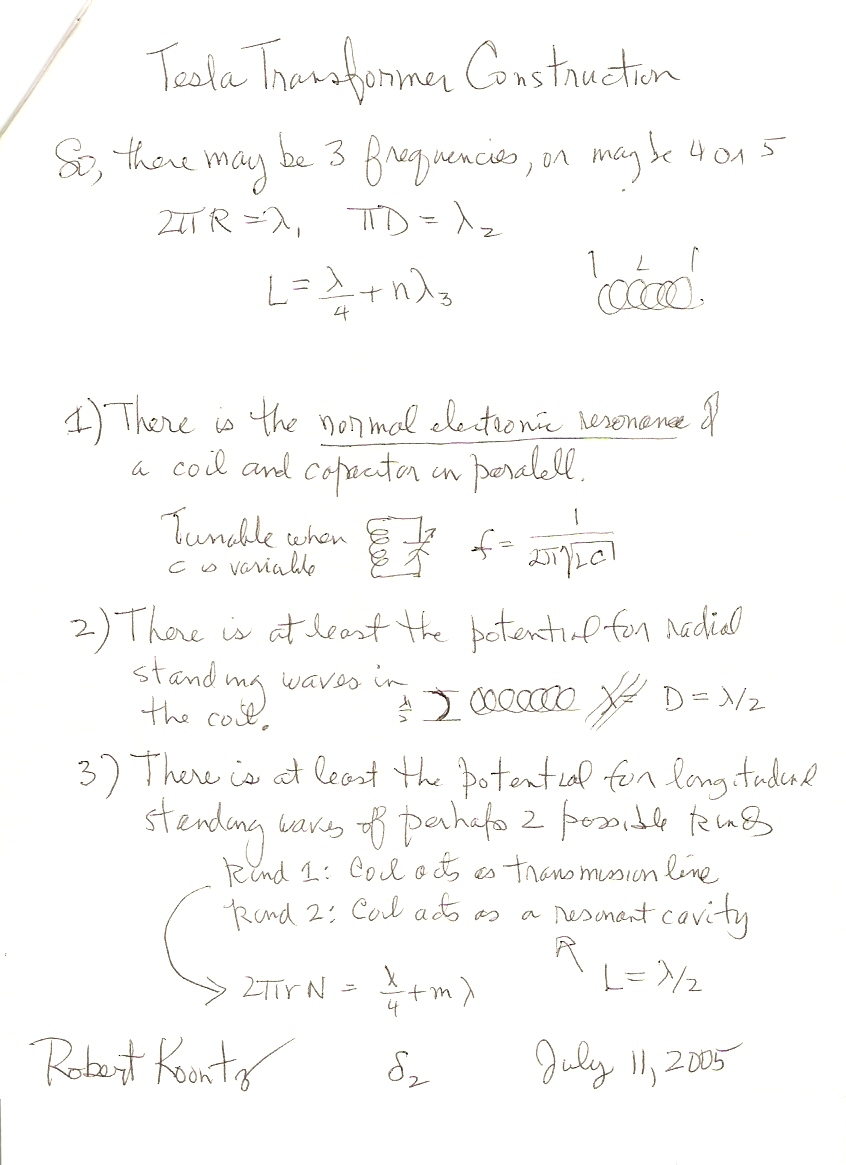 Tesla Transformer Construction
So, there may be 3 frequencies, or may be 4 or 5
2πR = λ₁ πD = λ₂
L = λ/4 + nλ₃
L
1) There is the normal electronic resonance of
a coil and capacitor in paralell.
Tunable when
C is variable
f = 1/2π√LC
2) There is at least the potential for radial
standing waves in
the coil.
λ/2 D = λ/2
3) There is at least the potential for longitudinal
standing waves of perhaps 2 possible kinds
Kind 1: Coil acts as transmission line
Kind 2: Coil acts as a resonant cavity
2πrN = λ/4 + mλ
L = λ/2
Robert Koontz δ₂ July 11, 2005